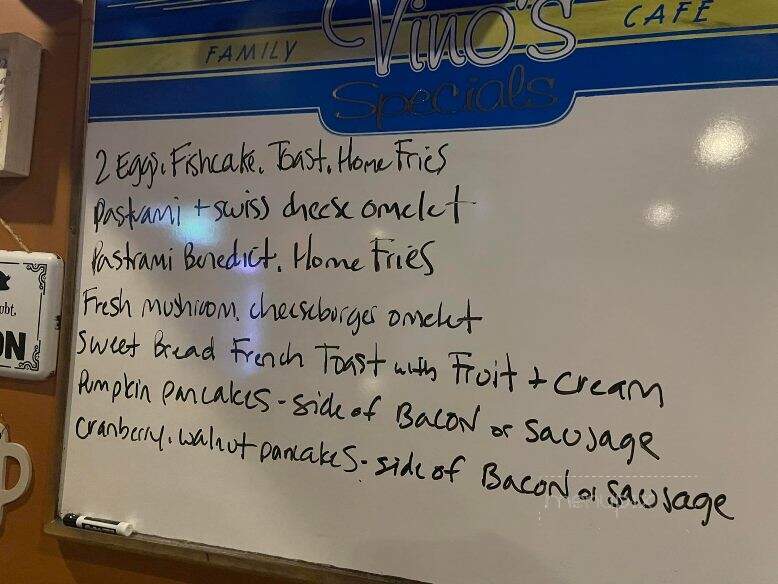 FAMILY Vino's CAFE
Specials
2 Eggs, Fishcake, Toast, Home Fries
Pastrami + swiss cheese omelet
Pastrami Benedict, Home Fries
Fresh mushroom, cheeseburger omelet
Sweet Bread French Toast with Fruit + cream
Pumpkin pancakes - side of Bacon or Sausage
Cranberry, walnut pancakes - side of Bacon or Sausage
ubt,
ON